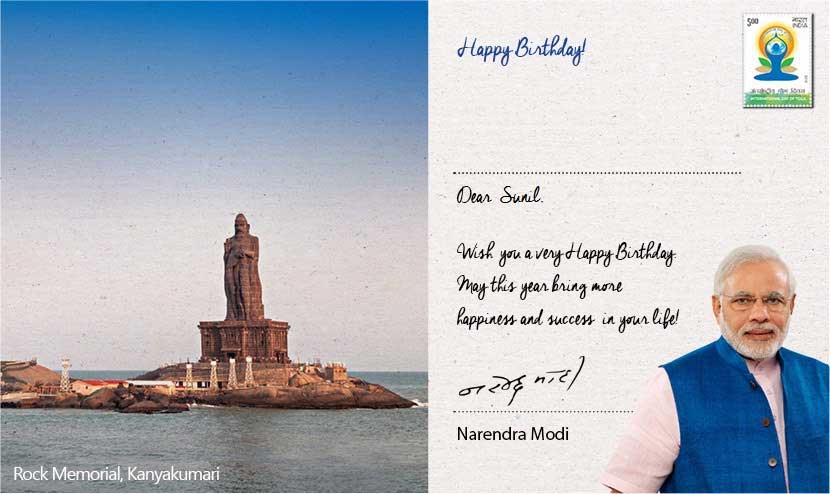 Happy Birthday!
500 भारत
INDIA
INTERNATIONAL DAY OF YOGA
Dear Sunil.
Wish you a very Happy Birthday.
May this year bring more
happiness and success in your life!
Narendra Modi
Rock Memorial, Kanyakumari